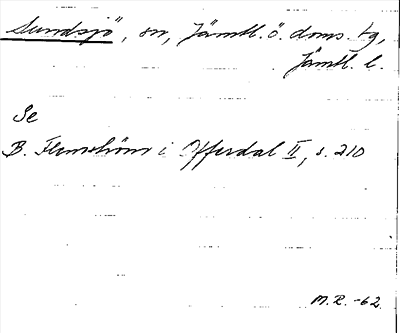 Sundsjö, sn, Jämtl. ö. doms. tg,
Jämtl. l.
Se
B. Flemström i Ifferdal II, s. 210
M.R. -62.